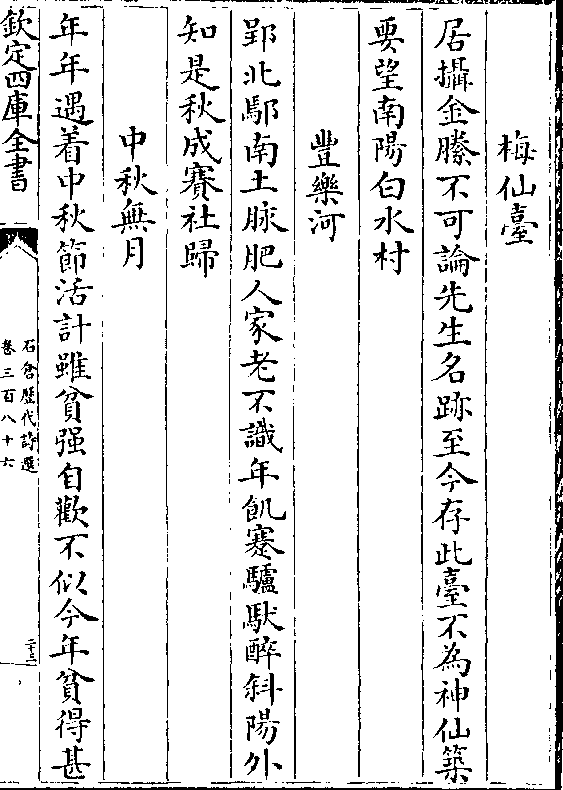 梅仙臺
居攝金縢不可論先生名跡至今存此臺不為神仙築
要望南陽白水村
豐樂河
郢北鄢南土脉肥人家老不識年飢蹇驢馱醉斜陽外
知是秋成賽社歸
中秋無月
年年遇着中秋節活計雖貧强自歡不似今年貧得甚
欽定四庫全書
石倉歷代詩選
卷三百八十六
二十三